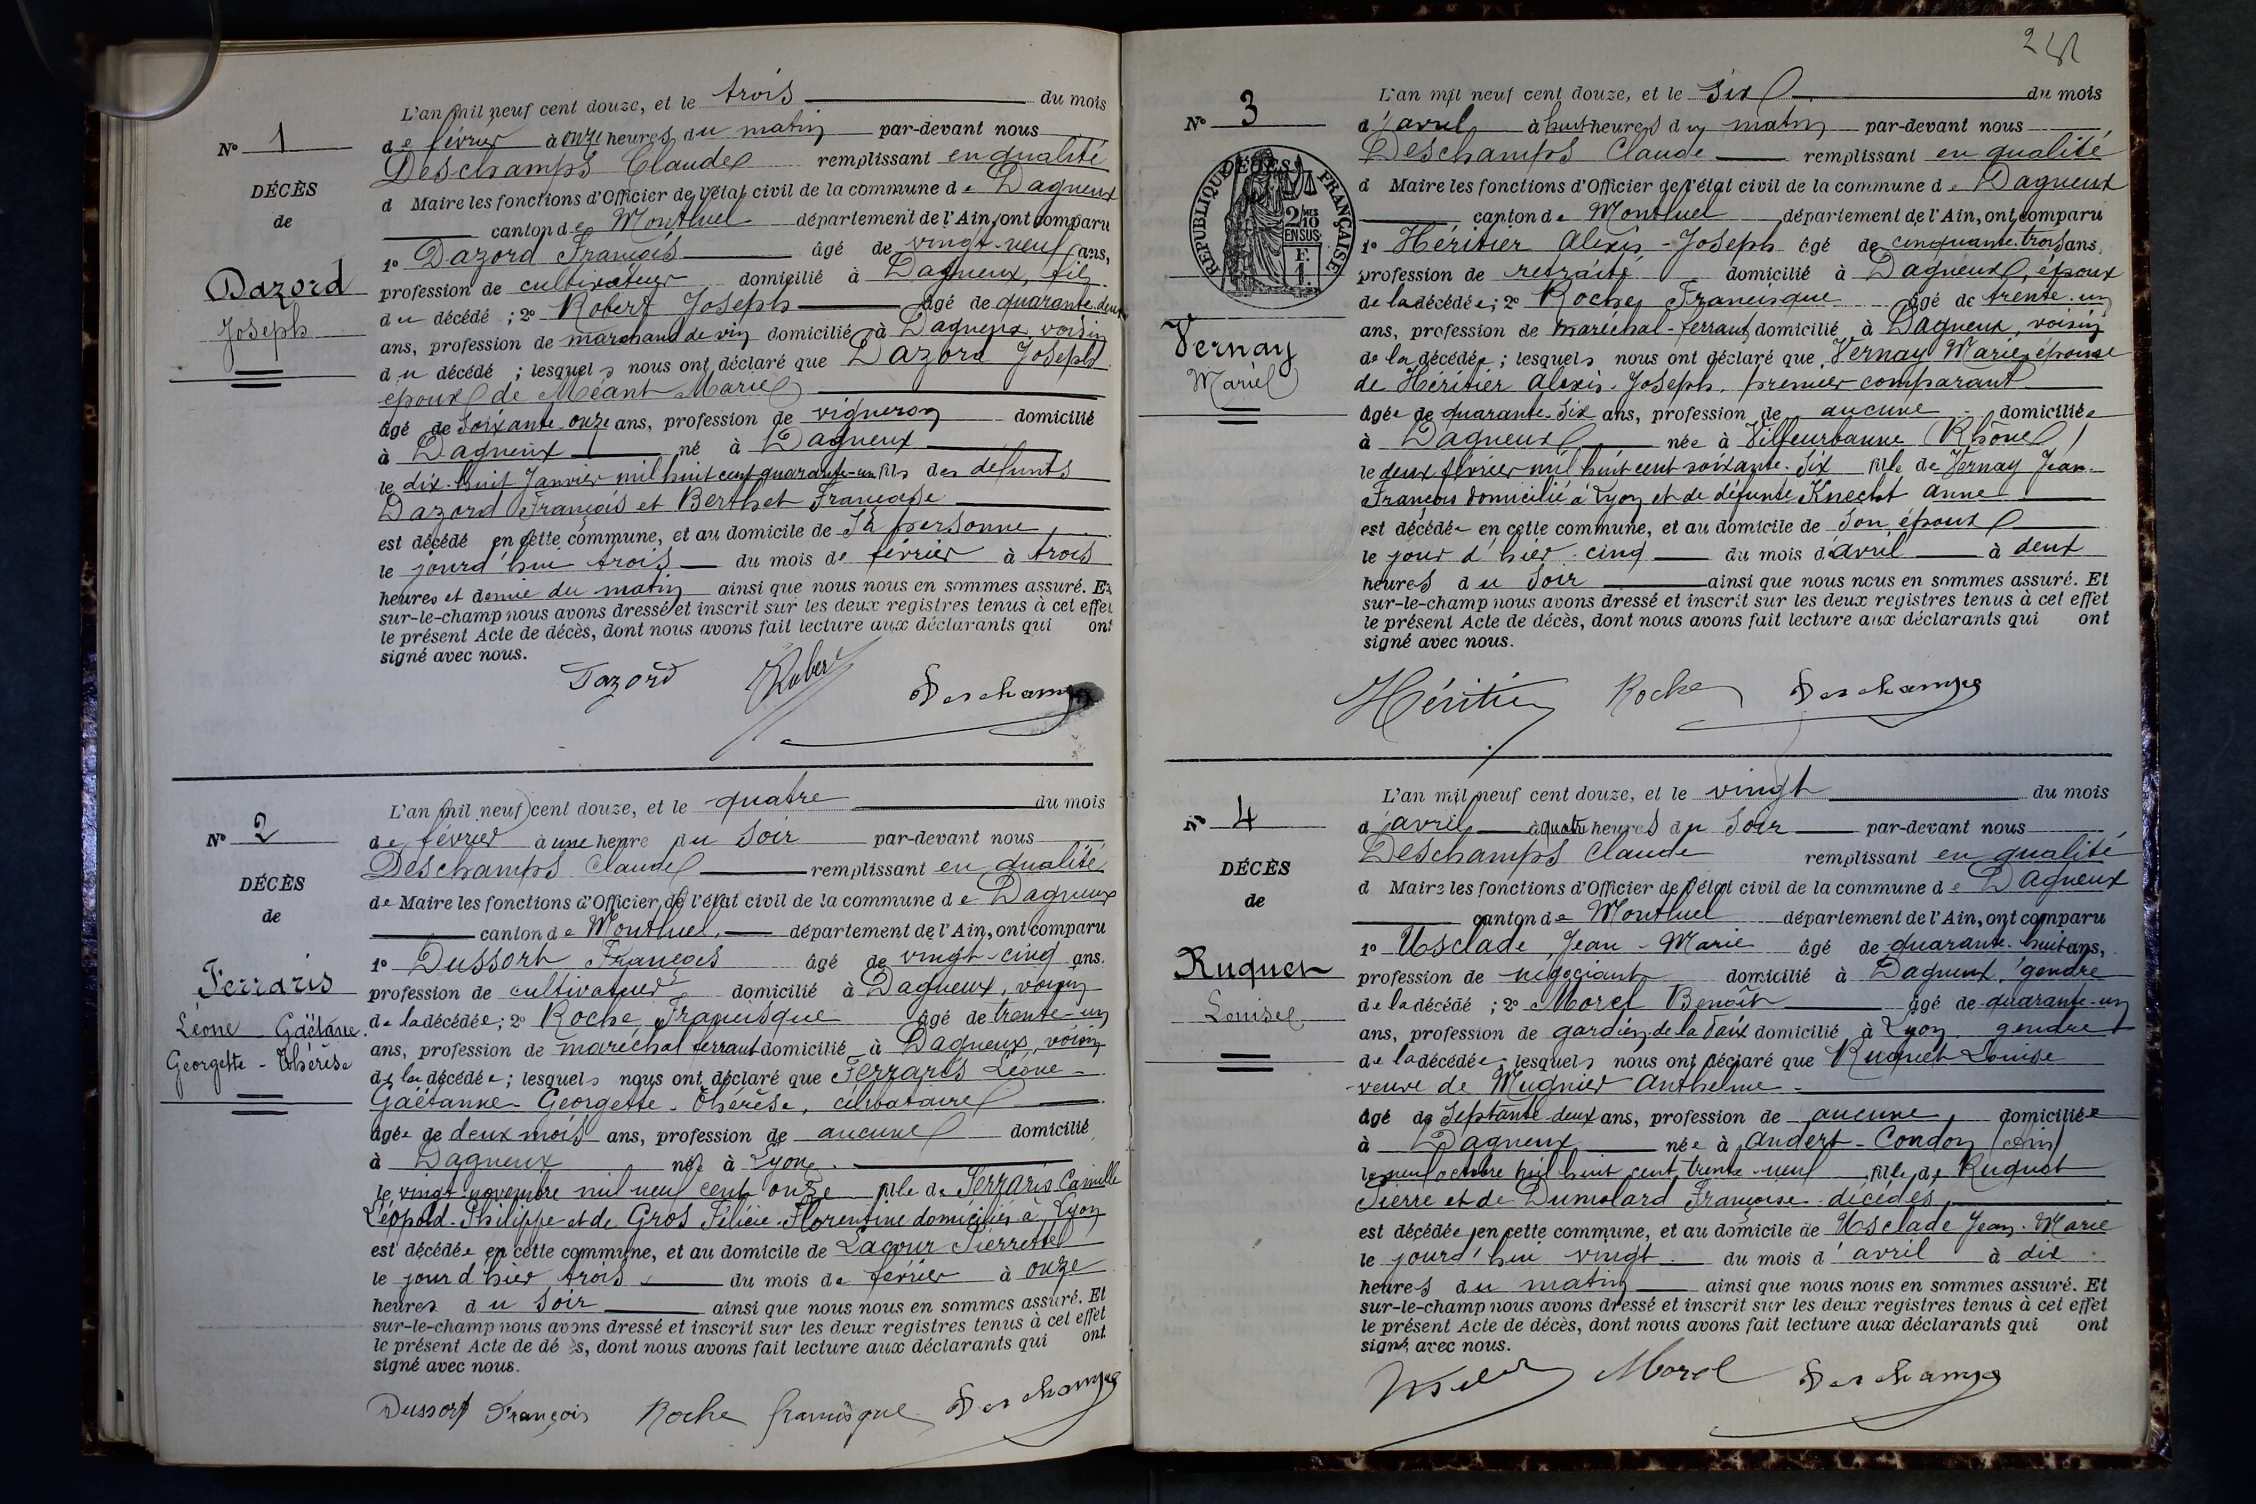 L'an mil neuf cent douze, et le trois du mois
N° 1
de février à onze heures du matin par-devant nous
Deschamps Claude remplissant en qualité
DÉCÈS
d Maire les fonctions d'Officier de l'état civil de la commune de Dagneux
de
canton de Montluel département de l'Ain, ont comparu
1° Dazord François âgé de vingt-neuf ans,
Dazord
profession de cultivateur domicilié à Dagneux, fils
Joseph
du décédé ; 2° Robert Joseph âgé de quarante-deux
ans, profession de marchand de vin domicilié à Dagneux, voisin
du décédé ; lesquels nous ont déclaré que Dazord Joseph
époux de Méant Marie
âgé de soixante-onze ans, profession de vigneron domicilié
à Dagneux né à Dagneux
le dix-huit Janvier mil huit cent quarante-un fils des défunts
Dazord François et Berthet Françoise
est décédé en cette commune, et au domicile de Sa personne
le jourd'hui trois du mois de février à trois
heures et demie du matin ainsi que nous nous en sommes assuré. Et
sur-le-champ nous avons dressé et inscrit sur les deux registres tenus à cet effet
le présent Acte de décès, dont nous avons fait lecture aux déclarants qui ont
signé avec nous.
Dazord Robert Deschamps
L'an mil neuf cent douze, et le quatre du mois
N° 2
de février à une heure du soir par-devant nous
Deschamps Claude remplissant en qualité
DÉCÈS
de Maire les fonctions d'Officier de l'état civil de la commune de Dagneux
de
canton de Montluel. département de l'Ain, ont comparu
1° Dussort François âgé de vingt-cinq ans,
Ferraris
profession de cultivateur domicilié à Dagneux, voisin
Léone Gaëtane
de la décédée ; 2° Roche Francisque âgé de trente-un
Georgette - Thérèse
ans, profession de maréchal ferrant domicilié à Dagneux, voisin
de la décédée ; lesquels nous ont déclaré que Ferraris Léone
Gaëtanne - Georgette - Thérèse, célibataire
âgée de deux mois ans, profession de aucune domicilié
à Dagneux née à Lyon
le vingt novembre mil neuf cent onze fille de Ferraris Camille
Léopold-Philippe et de Gros Félicie-Florentine domiciliés à Lyon
est décédée en cette commune, et au domicile de Lacour Pierrette
le jour d'hier trois du mois de février à onze
heures du soir ainsi que nous nous en sommes assuré. Et
sur-le-champ nous avons dressé et inscrit sur les deux registres tenus à cet effet
le présent Acte de décès, dont nous avons fait lecture aux déclarants qui ont
signé avec nous.
Dussort François Roche francisque Deschamps
2
L'an mil neuf cent douze, et le six du mois
N° 3
d'avril à huit heures du matin par-devant nous
Deschamps Claude remplissant en qualité
RÉPUBLIQUE FRANÇAISE
2/10 MES EN SUS
F. 1.
DÉCÈS
d Maire les fonctions d'Officier de l'état civil de la commune de Dagneux
canton de Montluel département de l'Ain, ont comparu
1° Héritier Alexis-Joseph âgé de cinquante-trois ans,
profession de retraité domicilié à Dagneux, époux
de la décédée ; 2° Roche Francisque âgé de trente-un
Vernay
ans, profession de maréchal-ferrant domicilié à Dagneux, voisin
Marie
de la décédée ; lesquels nous ont déclaré que Vernay Marie, épouse
de Héritier Alexis-Joseph, premier comparant
âgée de quarante-six ans, profession de aucune domiciliée
à Dagneux née à Villeurbanne (Rhône)
le deux février mil huit cent soixante-six fille de Vernay Jean-
François domicilié à Lyon et de défunte Knecht Anne
est décédée en cette commune, et au domicile de son époux
le jour d'hier cinq du mois d'avril à deux
heures du soir ainsi que nous nous en sommes assuré. Et
sur-le-champ nous avons dressé et inscrit sur les deux registres tenus à cet effet
le présent Acte de décès, dont nous avons fait lecture aux déclarants qui ont
signé avec nous.
Héritier Roche Deschamps
L'an mil neuf cent douze, et le vingt du mois
N° 4
d'avril à quatre heures du soir par-devant nous
Deschamps Claude remplissant en qualité
DÉCÈS
d Maire les fonctions d'Officier de l'état civil de la commune de Dagneux
de
canton de Montluel département de l'Ain, ont comparu
1° Usclade Jean-Marie âgé de quarante-huit ans,
Ruquet
profession de négociant domicilié à Dagneux, gendre
Louise
de la décédé ; 2° Morel Benoît âgé de quarante-un
ans, profession de gardien de la Paix domicilié à Lyon, gendre
de la décédée lesquels nous ont déclaré que Ruquet Louise
veuve de Mugnier Anthelme
âgé de septante deux ans, profession de aucune, domiciliée
à Dagneux née à Andert-Condon (Ain)
le neuf octobre mil huit cent trente-neuf fille de Ruquet
Pierre et de Dumolard Françoise décédés,
est décédée en cette commune, et au domicile de Usclade Jean-Marie
le jourd'hui vingt du mois d'avril à dix
heures du matin ainsi que nous nous en sommes assuré. Et
sur-le-champ nous avons dressé et inscrit sur les deux registres tenus à cet effet
le présent Acte de décès, dont nous avons fait lecture aux déclarants qui ont
signé avec nous.
Morel Deschamps